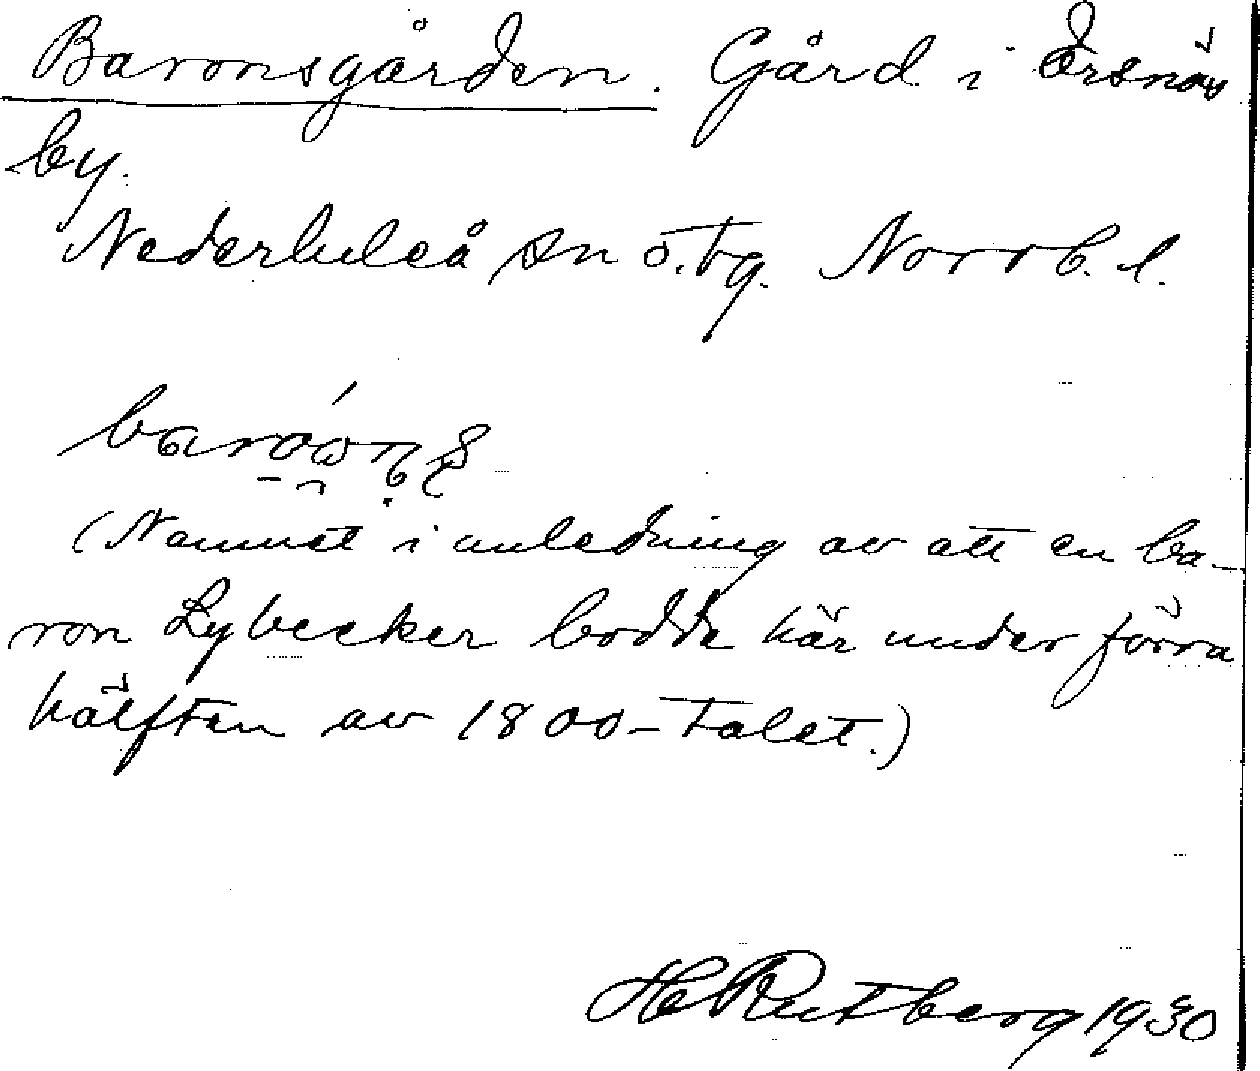 Baronsgården. Gård i Ersnäs
by.
Nederluleå sn ö. tg. Norrb. l.
(Namnet i anledning av att en ba-
ron Lybecker bodde här under förra
hälften av 1800-talet.)
H Rutberg 1930